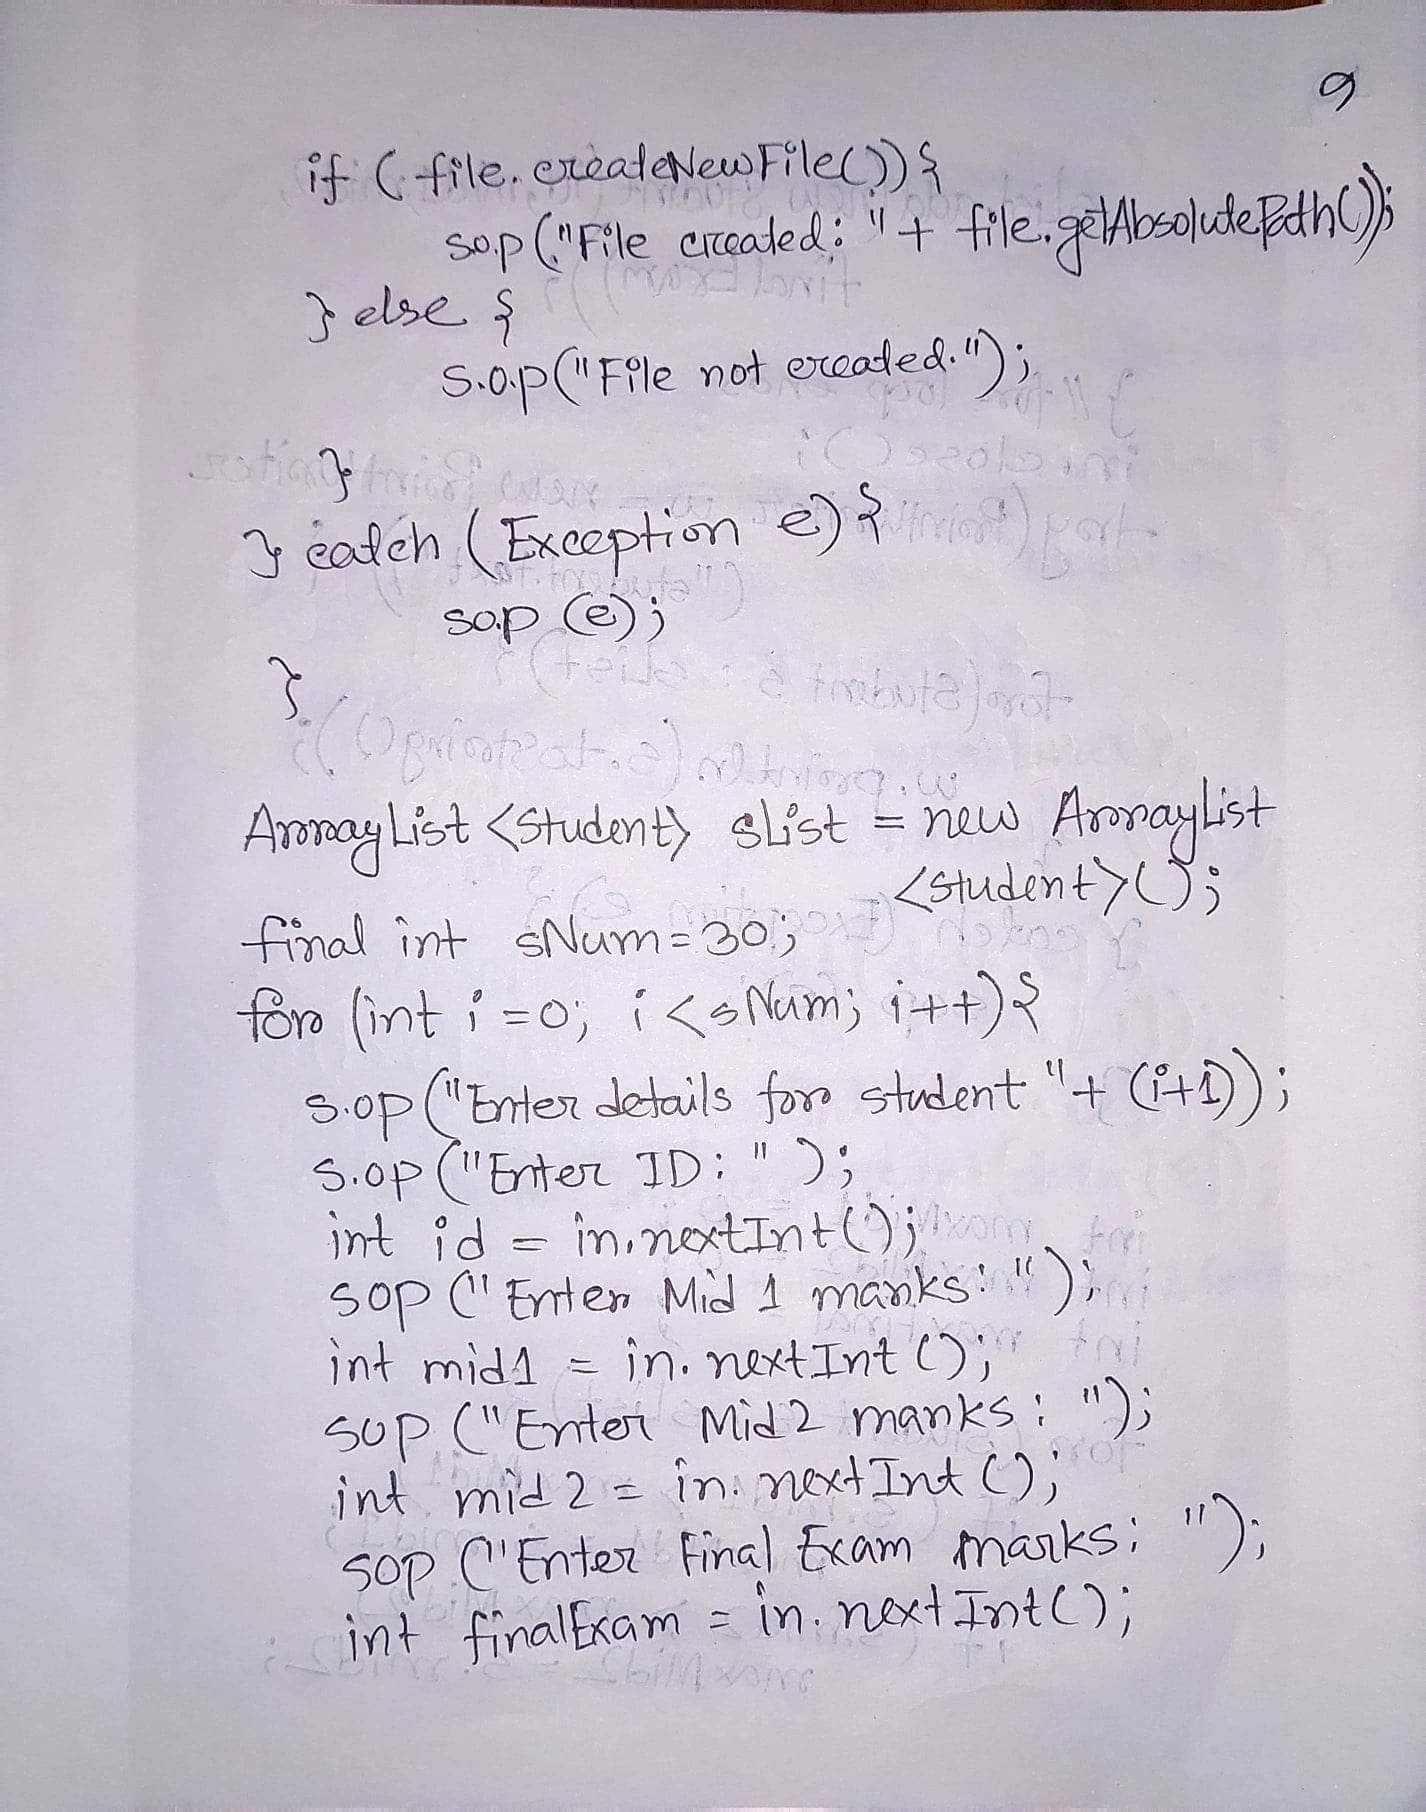 9
if (file.createNewFile()){
s.o.p("File created: " + file.getAbsolutePath());
} else {
s.o.p("File not created.");
}
} catch (Exception e) {
s.o.p (e);
}
ArrayList <Student> sList = new ArrayList
<student>();
final int sNum=30;
for (int i=0; i<sNum; i++){
s.op("Enter details for student "+ (i+1));
s.op("Enter ID: " );
int id = in.nextInt();
sop ("Enter Mid 1 marks: ");
int mid1 = in.nextInt ();
sop ("Enter Mid2 marks: ");
int mid2 = in.nextInt ();
sop ("Enter Final Exam marks: ");
int finalExam = in.nextInt();